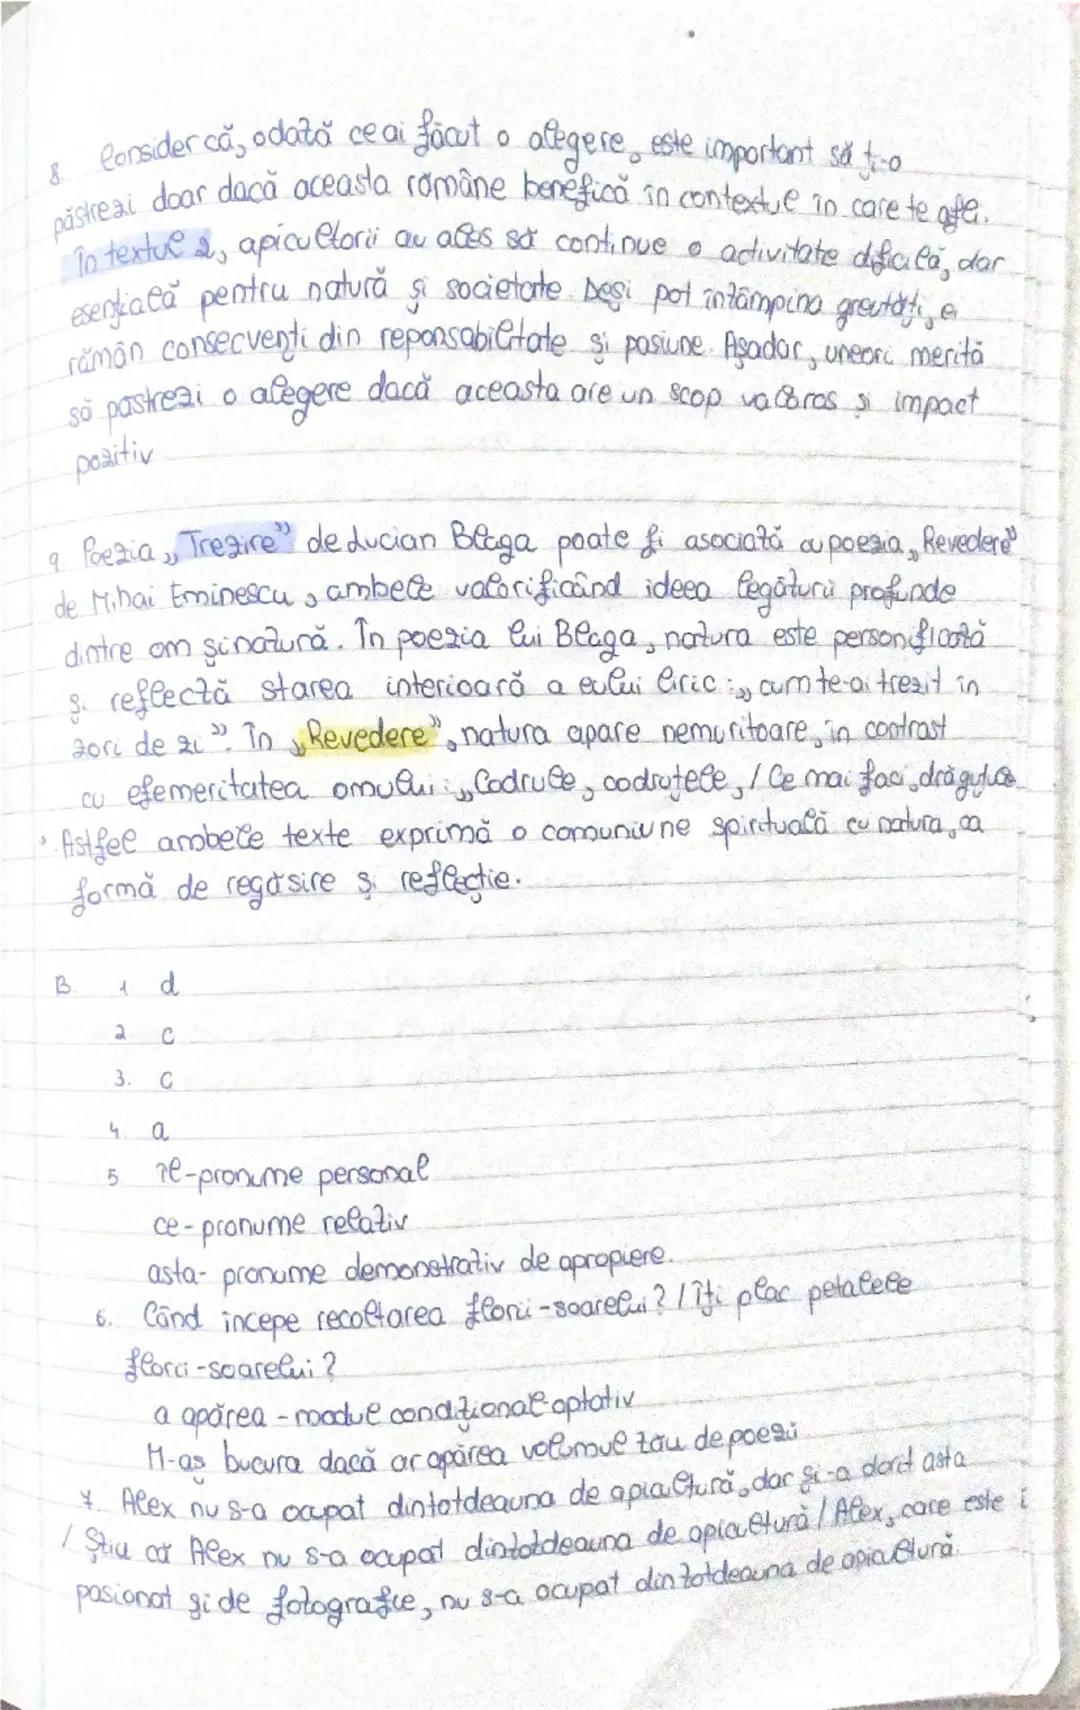 8. Consider că, odată ce ai făcut o alegere, este important să ți-o
păstrezi doar dacă aceasta rămâne benefică în contextul în care te afli.
În textul 2, apicultorii au ales să continue o activitate dificilă, dar
esențială pentru natură și societate. Deși pot întâmpina greutăți, ei
rămân consecvenți din reponsabilitate și pasiune. Așadar, uneori merită
să păstrezi o alegere dacă aceasta are un scop valoros și impact
pozitiv
9 Poezia „Trezire” de Lucian Blaga poate fi asociată cu poezia „Revedere”
de Mihai Eminescu, ambele valorificând ideea legăturii profunde
dintre om și natură. În poezia lui Blaga, natura este personificată
și reflectă starea interioară a eului liric: „cum te-ai trezit în
zori de zi”. În „Revedere”, natura apare nemuritoare, în contrast
cu efemeritatea omului: „Codrule, codruțele, / Ce mai faci, drăguțule
”. Astfel ambele texte exprimă o comuniune spirituală cu natura, ca
formă de regăsire și reflecție.
B. 1 d
2 c
3. c
4. a
5 îl-pronume personal
ce-pronume relativ
asta- pronume demonstrativ de apropiere.
6. Când începe recoltarea florii-soarelui? / Îți plac petalele
florii-soarelui?
a apărea - modul condițional-optativ
M-aș bucura dacă ar apărea volumul tău de poezii
7. Alex nu s-a ocupat dintotdeauna de apicultură, dar și-a dorit asta
/ Știu că Alex nu s-a ocupat dintotdeauna de apicultură / Alex, care este
pasionat și de fotografie, nu s-a ocupat dintotdeauna de apicultură.